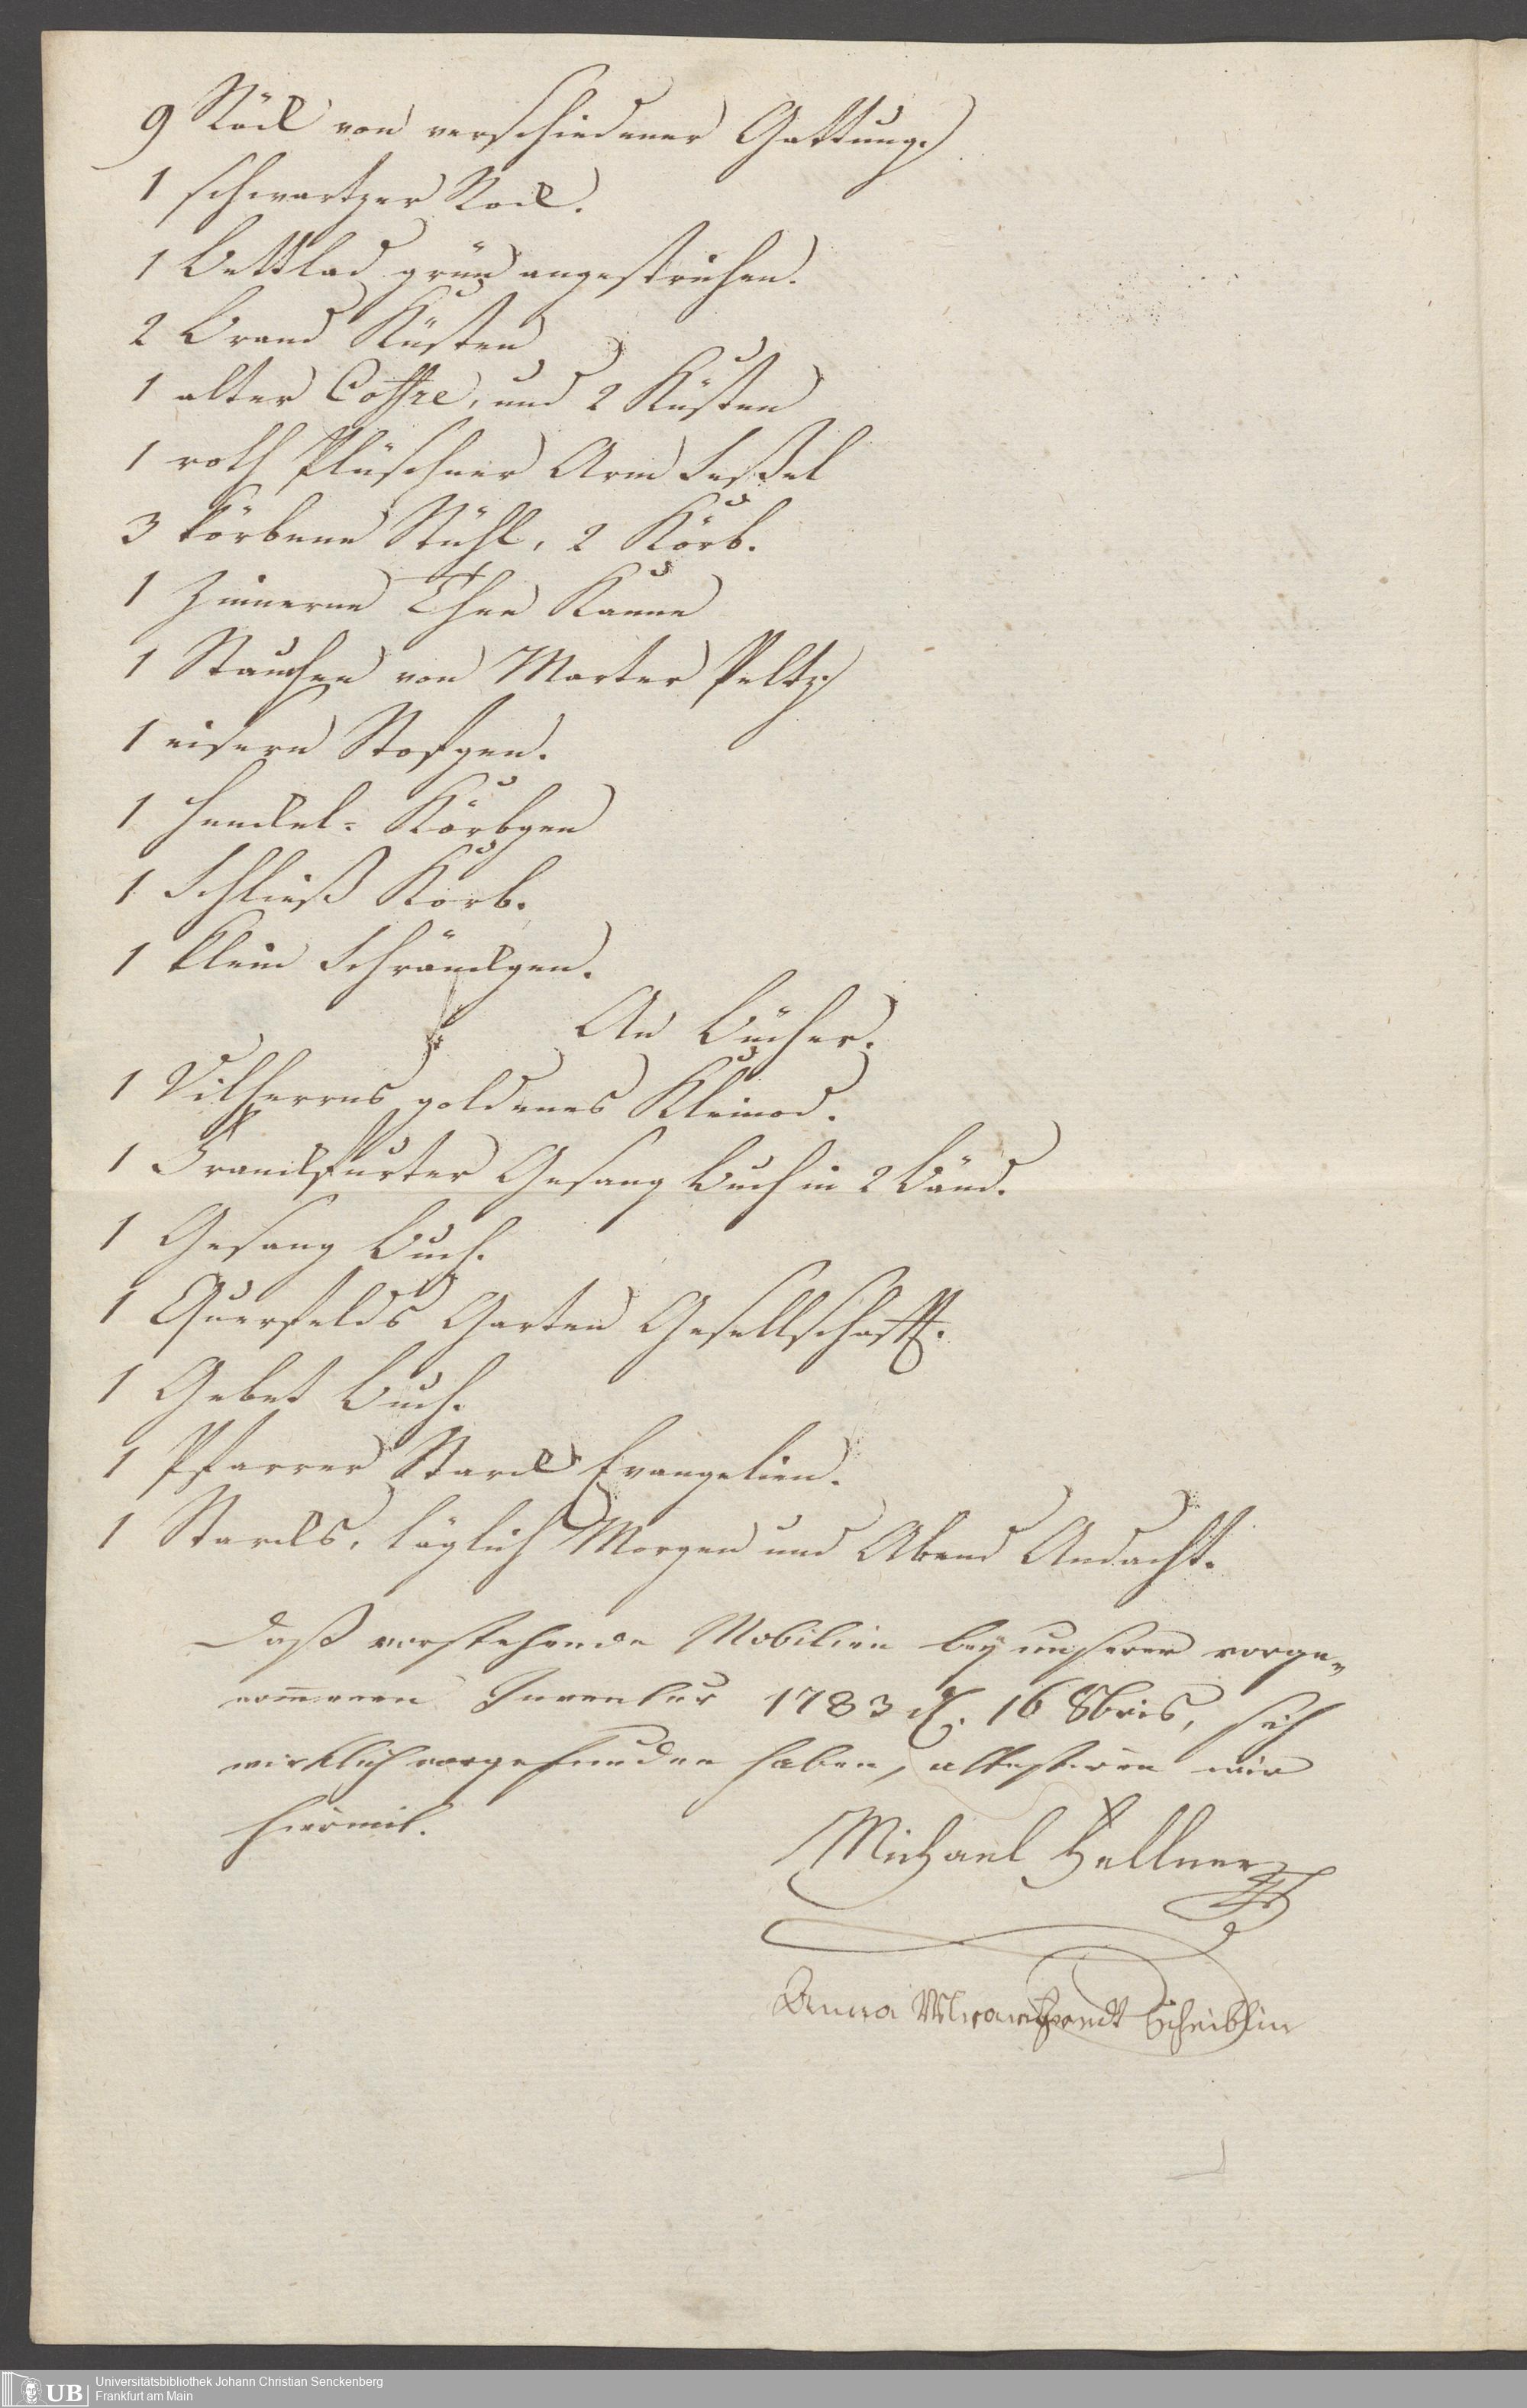 9 Röck von verschiedener Gattung.
1 schwartzer Rock.
1 Bettlad grün angestrichen.
2 Brand Küsten
1 alter Coffre, und 2 Küsten
1 roth Plüschner Arm Seßel
3 körbene Stühl, 2 Körb.
1 Zinnerne Thee Kanne
1 Stauchen von Marter Peltz.
1 eisern Stofgen.
1 Henckel-Körbgen
1 Schließ Korb.
1 klein Schränckgen.
An Bücher.
1 Vilherrns goldenes Kleinod.
1 Franckfurter Gesang Buch in 2 Bänd.
1 Gesang Buch.
1 Querfelds Garten Gesellschafft.
1 Gebet Buch.
1 Pfarrer Starck Evangelien.
1 Starcks, täglich Morgen und Abend Andacht.
Daß vorstehende Mobilien beÿ unserer vorge-
nom̄enen Inventur 1783 d. 16 8bris, sich
wirklich vorgefunden haben, attestiren wir
hiermit.
Michael Hellner
Anna Scheiblin
Universitätsbibliothek Johann Christian Senckenberg
Frankfurt am Main
UB